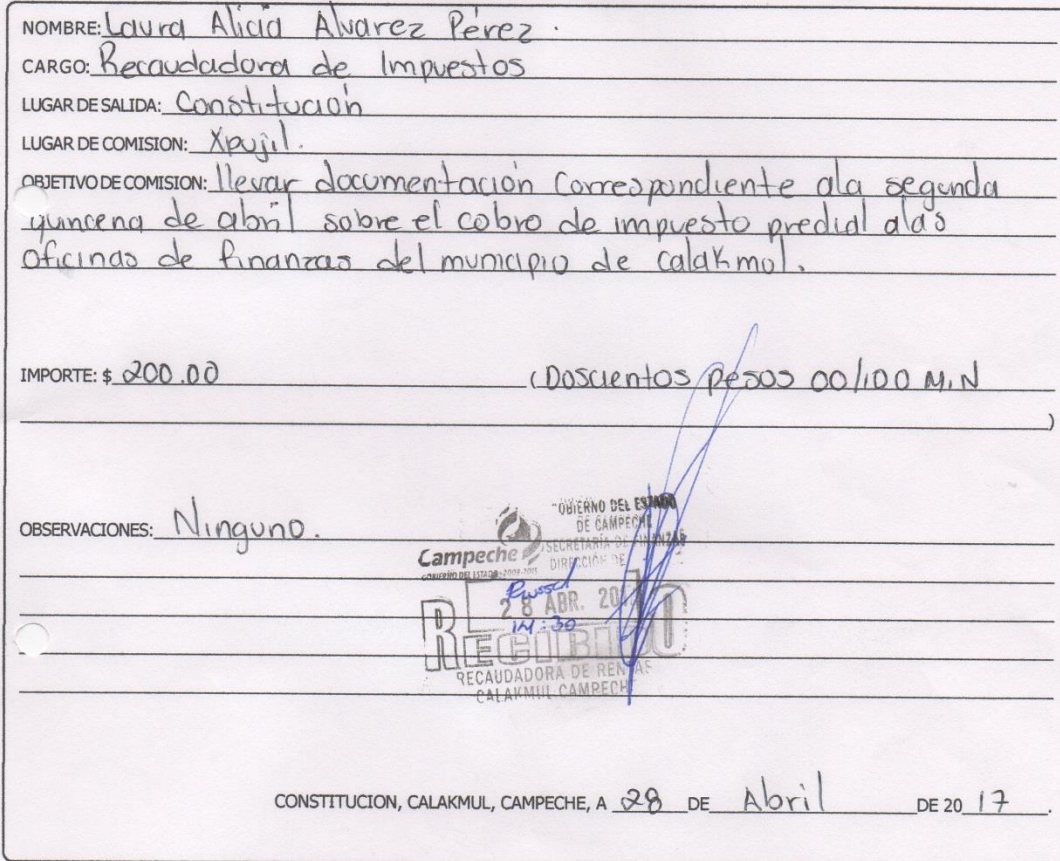 NOMBRE: Laura Alicia Alvarez Pérez.
CARGO: Recaudadora de Impuestos
LUGAR DE SALIDA: Constitución
LUGAR DE COMISION: Xpujil.
OBJETIVO DE COMISION: llevar documentación Correspondiente ala segunda
quincena de abril sobre el cobro de impuesto predial alas
Oficinas de finanzas del municipio de Calakmul.
IMPORTE: $ 200.00 (Doscientos pesos 00/100 M.N
)
OBSERVACIONES: Ninguno.
GOBIERNO DEL ESTADO
DE CAMPECHE
SECRETARÍA DE FINANZAS
DIRECCIÓN DE
Campeche
GOBIERNO DEL ESTADO 2009-2015
28 ABR.
14:30
RECIBIDO
RECAUDADORA DE RENTAS
CALAKMUL CAMPECHE
CONSTITUCION, CALAKMUL, CAMPECHE, A 28 DE Abril DE 20 17.